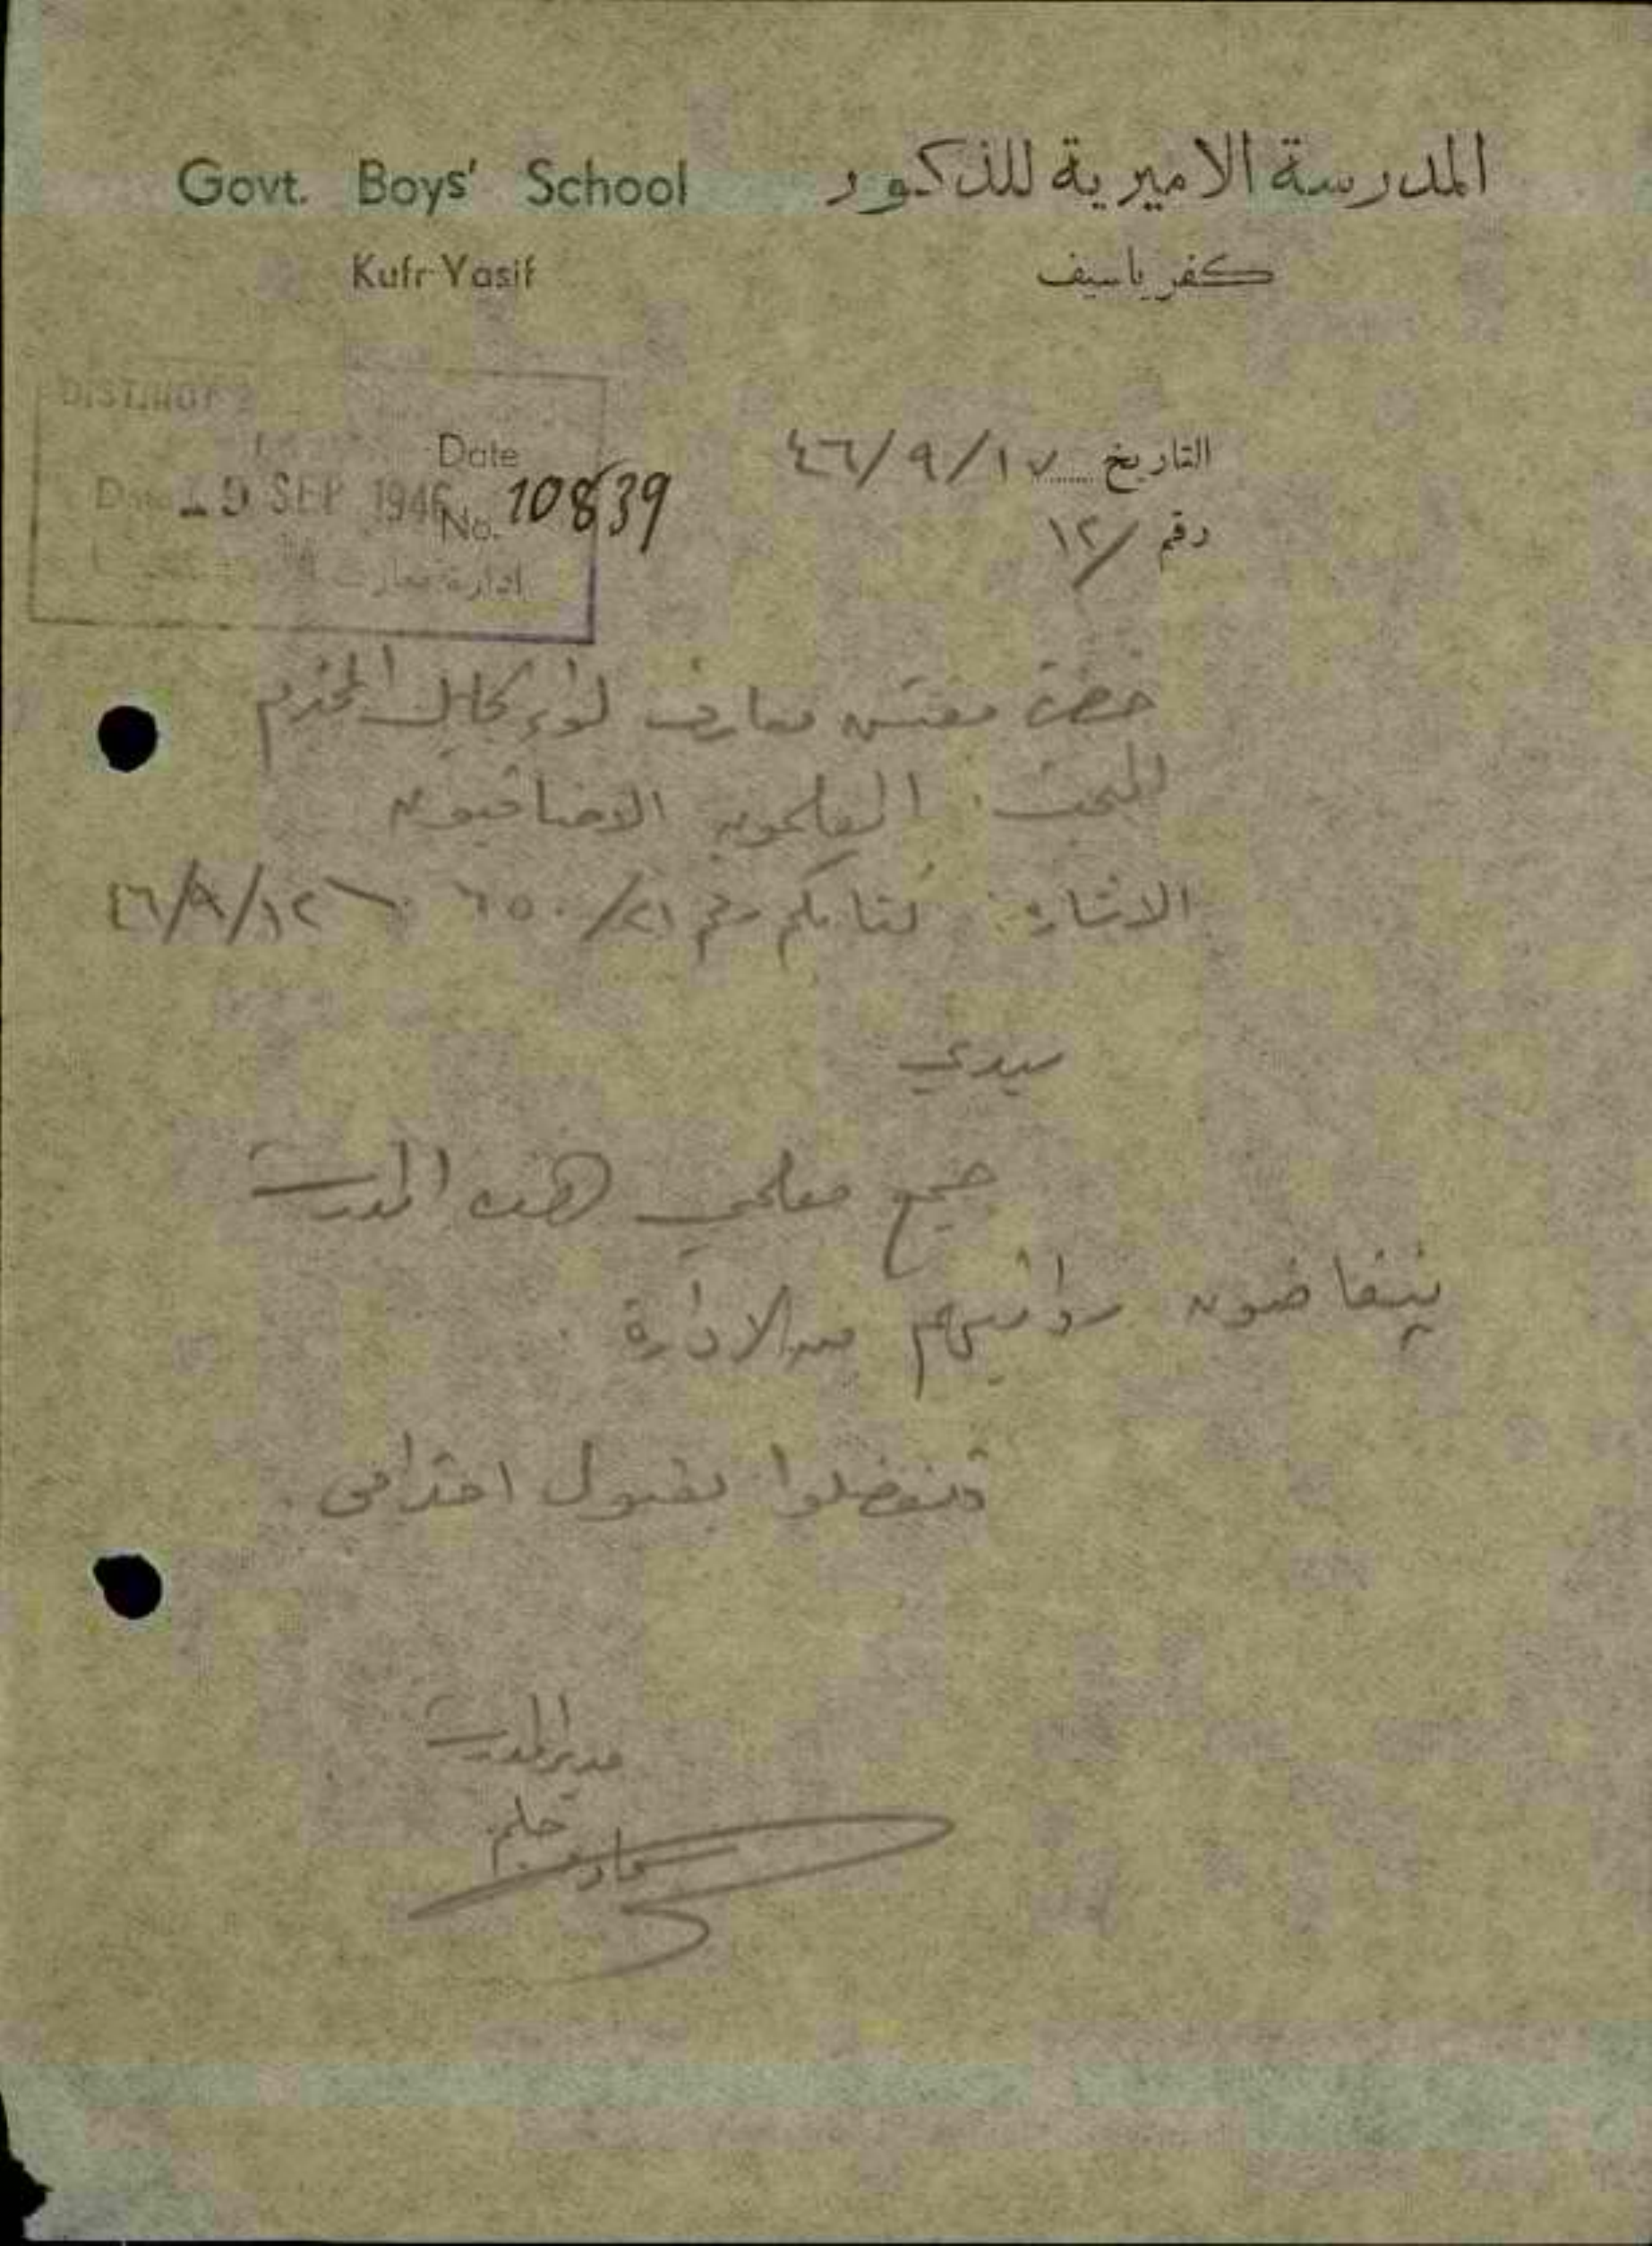 Govt. Boys' School
المدرسة الاميرية للذكور
Kufr-Yasif
كفر ياسيف
DISTRICT
Date
19 SEP 1946
No. 10839
ادارة معارف
التاريخ ٤٦/٩/١٧
رقم /١٢
حضرة مفتش معارف لواء الجليل المحترم
المبحث: المعلمون الاضافيون
الاشارة: كتابكم رقم ٦٥٠/٢١ ٤٦/٩/١٢
سيدي
جميع معلمي هذه المدرسة
يتقاضون رواتبهم من الادارة.
وتفضلوا بقبول احترامي.
مدير المدرسة